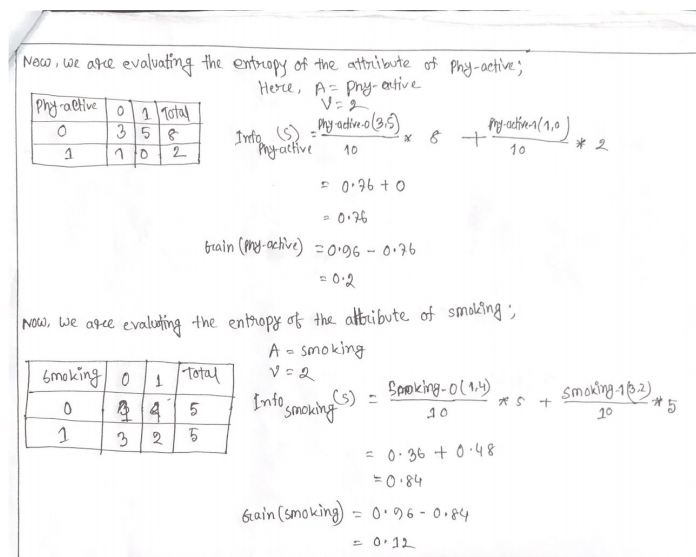 Now, we are evaluating the entropy of the attribute of Phy-active;
Here, A = Phy-active
V = 2
Phy-active 0 1 Total
0 3 5 8
1 1 0 2
Info Phy-active (S) = Phy-active-0(3,5) / 10 * 8 + Phy-active-1(1,0) / 10 * 2
= 0.76 + 0
= 0.76
Gain (Phy-active) = 0.96 - 0.76
= 0.2
Now, we are evaluting the entropy of the attribute of smoking;
A = smoking
V = 2
Smoking 0 1 Total
0 1 4 5
1 3 2 5
Info smoking (S) = Smoking-0(1,4) / 10 * 5 + Smoking-1(3,2) / 10 * 5
= 0.36 + 0.48
= 0.84
Gain (smoking) = 0.96 - 0.84
= 0.12